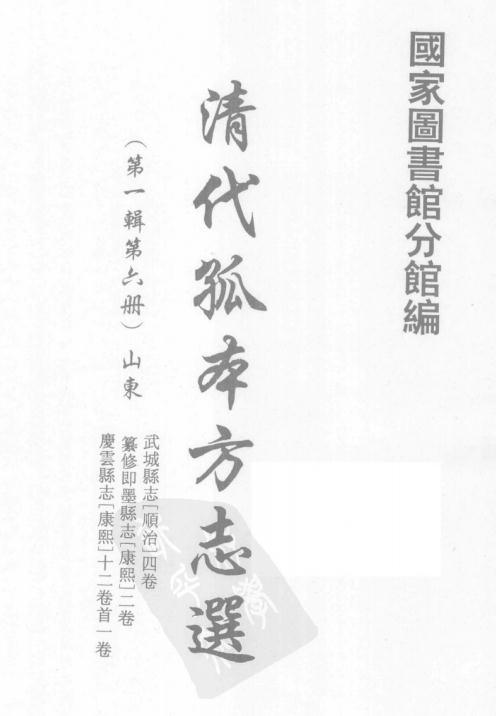 國家圖書館分館編
清代孤本方志選
（第一輯第六册）山東
武城縣志［順治］四卷
纂修即墨縣志［康熙］二卷
慶雲縣志［康熙］十二卷首一卷